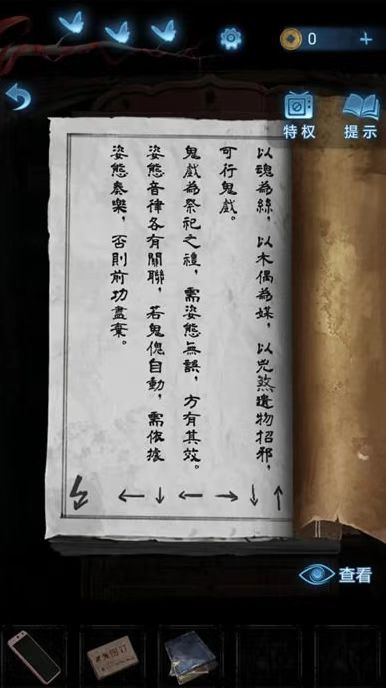 0
特权
提示
以魂為絲，以木偶為媒，以兇煞遺物招邪，
可行鬼戲。
鬼戲為祭祀之禮，需姿態無誤，方有其效。
姿態音律各有關聯，若鬼傀自動，需依據
姿態奏樂，否則前功盡棄。
查看